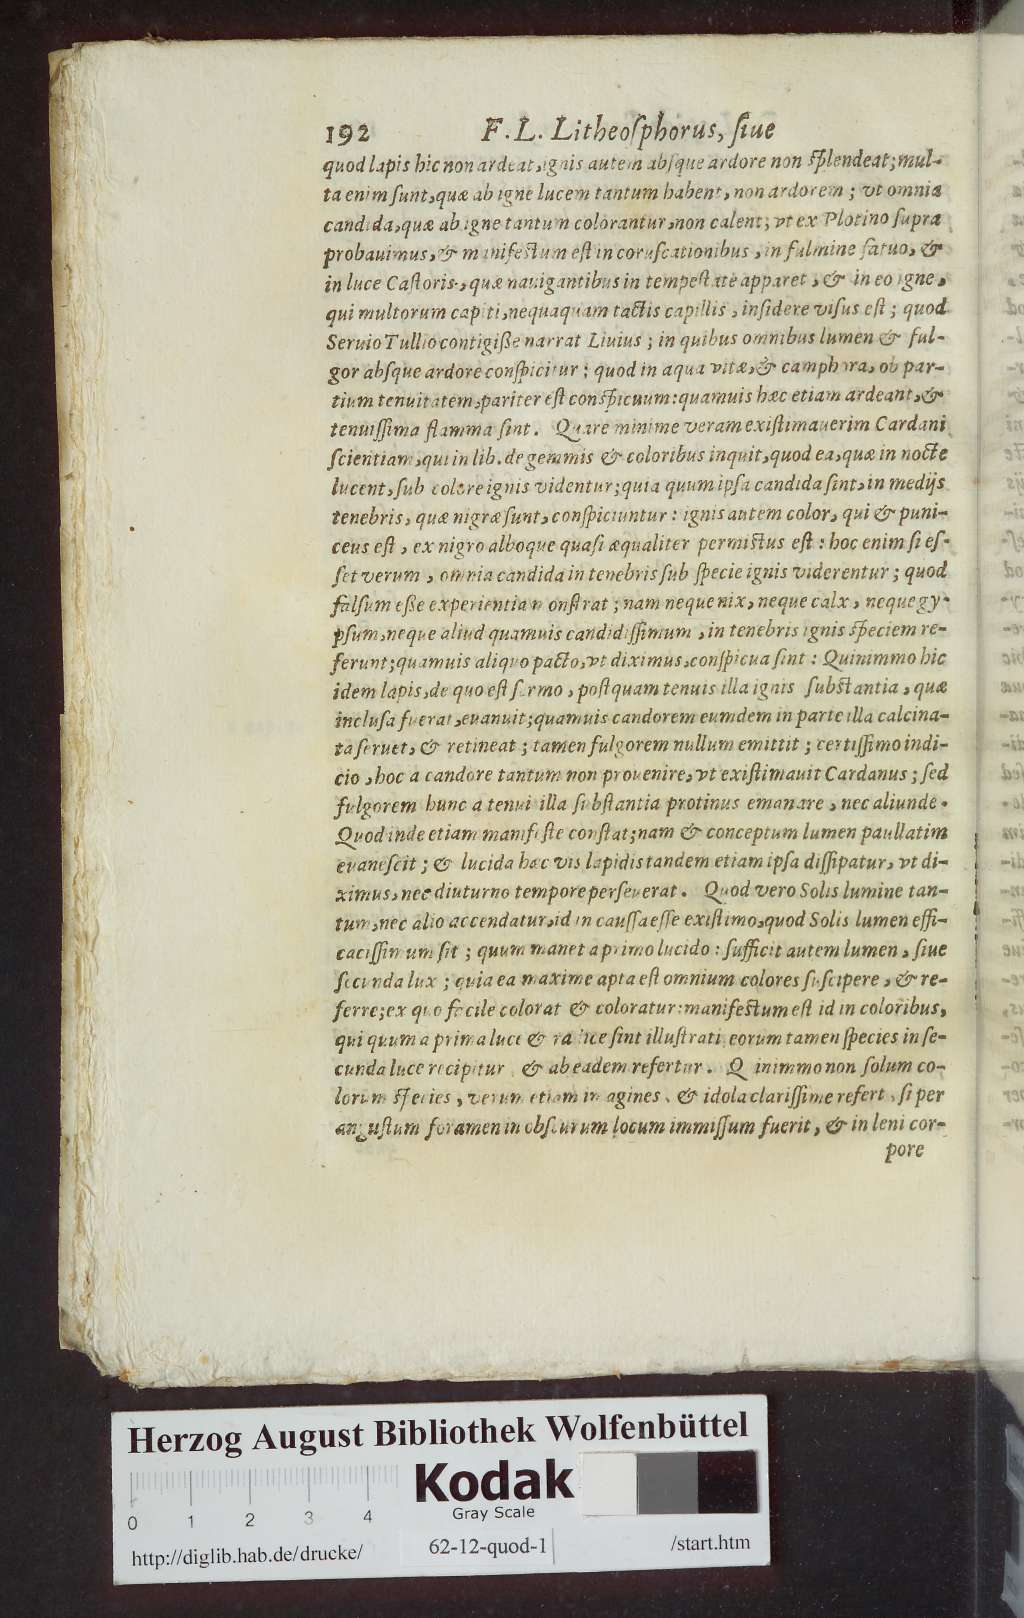 192 F. L. Litheoſphorus, ſiue
quod lapis hic non ardeat, ignis autem abſque ardore non ſplendeat; mul-
ta enim ſunt, quæ ab igne lucem tantum habent, non ardorem; vt omnia
candida, quæ ab igne tantum colorantur, non calent; vt ex Plotino ſupra
probauimus, & manifeſtum eſt in coruſcationibus, in fulmine fatuo, &
in luce Caſtoris, quæ nauigantibus in tempeſtate apparet, & in eo igne,
qui multorum capiti, nequaquam tactis capillis, inſidere viſus eſt; quod
Seruio Tullio contigiſſe narrat Liuius; in quibus omnibus lumen & ful-
gor abſque ardore conſpicitur; quod in aqua vitæ, & camphora, ob par-
tium tenuitatem, pariter eſt conſpicuum: quamuis hæc etiam ardeant, &
tenuiſſima flamma ſint. Quare minime veram exiſtimauerim Cardani
ſcientiam, qui in lib. de gemmis & coloribus inquit, quod ea, quæ in nocte
lucent, ſub colore ignis videntur; quia quum ipſa candida ſint, in medijs
tenebris, quæ nigræ ſunt, conſpiciuntur: ignis autem color, qui & puni-
ceus eſt, ex nigro alboque quaſi æqualiter permiſtus eſt: hoc enim ſi eſ-
ſet verum, omnia candida in tenebris ſub ſpecie ignis viderentur; quod
falſum eſſe experientia monſtrat; nam neque nix, neque calx, neque gy-
pſum, neque aliud quamuis candidiſſimum, in tenebris ignis ſpeciem re-
ferunt; quamuis aliquo pacto, vt diximus, conſpicua ſint: Quinimmo hic
idem lapis, de quo eſt ſermo, poſtquam tenuis illa ignis ſubſtantia, quæ
incluſa fuerat, euanuit; quamuis candorem eumdem in parte illa calcina-
ta ſeruet, & retineat; tamen fulgorem nullum emittit; certiſſimo indi-
cio, hoc a candore tantum non prouenire, vt exiſtimauit Cardanus; ſed
fulgorem hunc a tenui illa ſubſtantia protinus emanare, nec aliunde.
Quod inde etiam manifeſte conſtat; nam & conceptum lumen paullatim
euaneſcit; & lucida hæc vis lapidis tandem etiam ipſa diſſipatur, vt di-
ximus, nec diuturno tempore perſeuerat. Quod vero Solis lumine tan-
tum, nec alio accendatur, id in cauſſa eſſe exiſtimo, quod Solis lumen effi-
caciſſimum ſit; quum manet a primo lucido: ſufficit autem lumen, ſiue
ſecunda lux; quia ea maxime apta eſt omnium colores ſuſcipere, & re-
ferre; ex quo facile colorat & coloratur: manifeſtum eſt id in coloribus,
qui quum a prima luce & radice ſint illuſtrati, eorum tamen ſpecies in ſe-
cunda luce recipitur, & ab eadem refertur. Quinimmo non ſolum co-
lorum ſpecies, verum etiam imagines, & idola clariſſime refert, ſi per
anguſtum foramen in obſcurum locum immiſſum fuerit, & in leni cor-
pore
Herzog August Bibliothek Wolfenbüttel
Kodak
Gray Scale
0 1 2 3 4
http://diglib.hab.de/drucke/ 62-12-quod-1 /start.htm